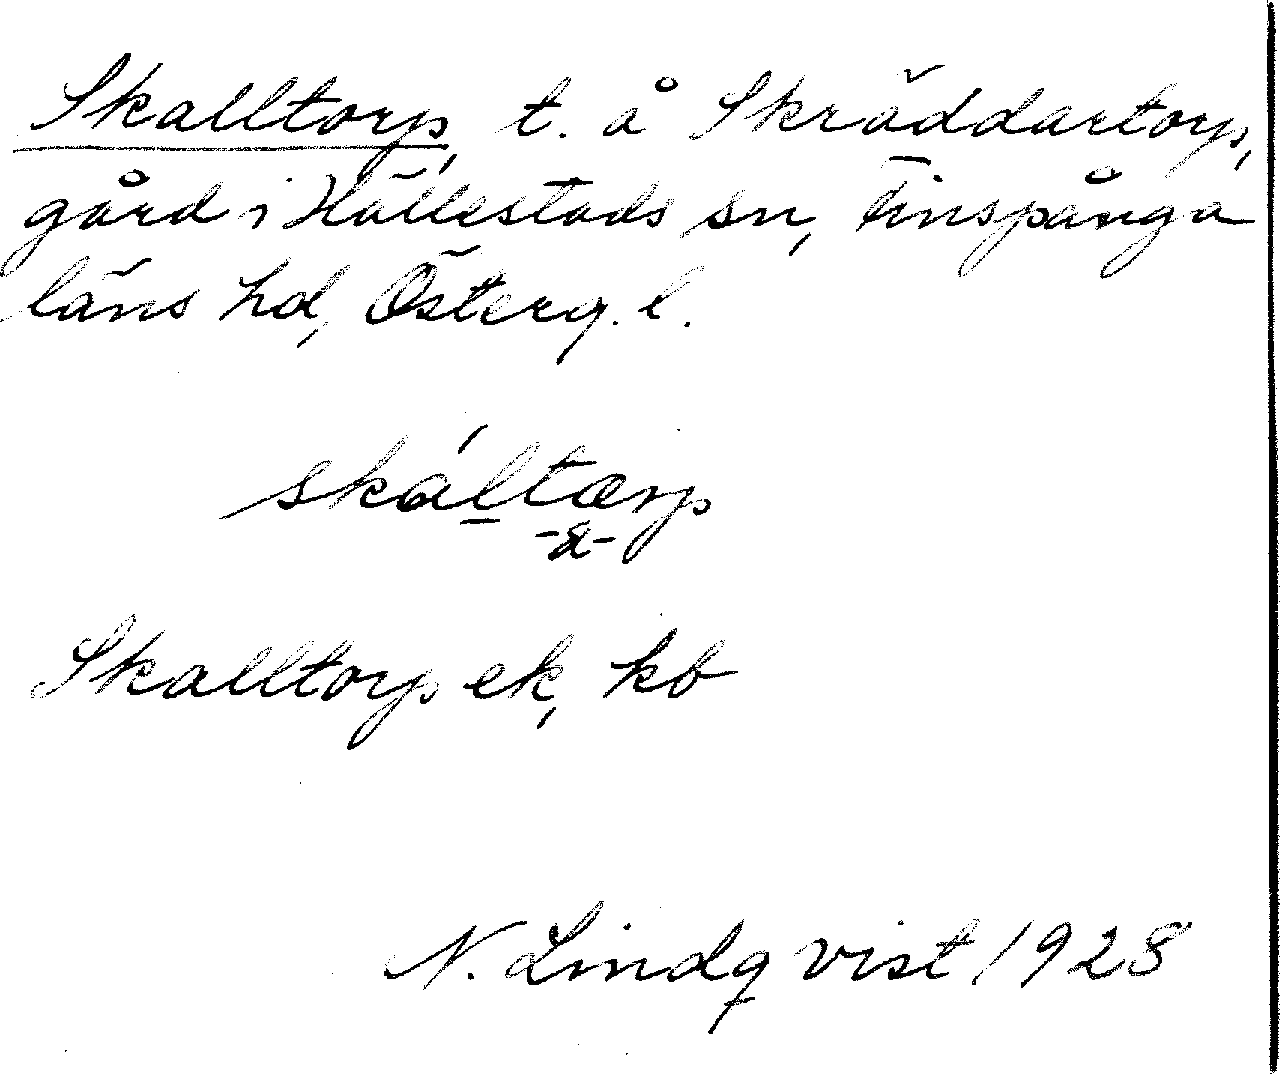 Skalltorp, t. å Skräddartorp,
gård i Hällestads sn, Finspånga
läns hd, Österg. l.
skáltærp
-a-
Skalltorp ek, kb
N. Lindqvist 1928